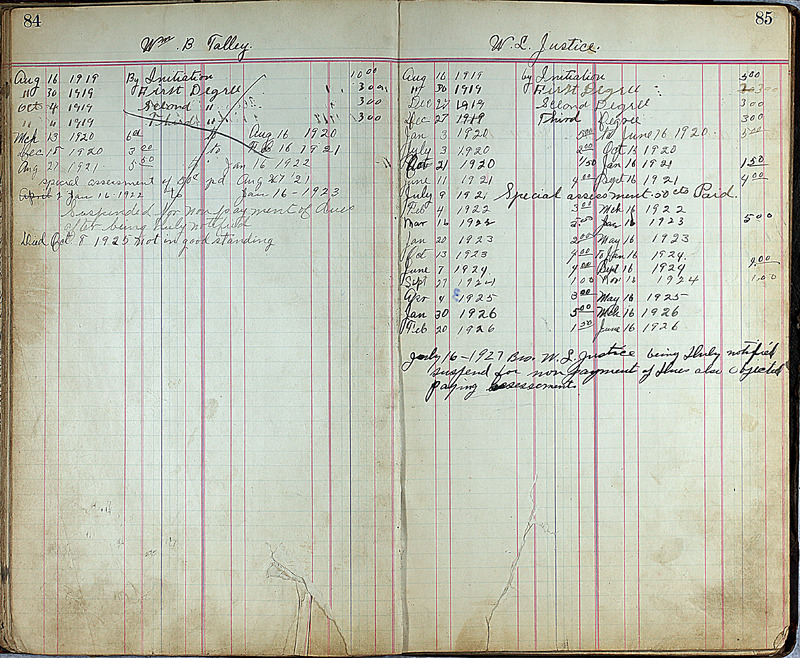 84
Wm. B Talley.
Aug 16 1919 By Initiation 10 00
" 30 1919 First Degree " " 3 00
Oct 4 1919 Second " 3 00
" 11 1919 Third " 3 00
Mch 13 1920 to Aug 16 1920
Dec 15 1920 3 00 to Feb 16 1921
Aug 27 1921 5 50 to Jan 16 1922
special assessment of 50c pd Aug 27 '21
Jan 16 1922 to Jan-16-1923
Suspended for non payment of dues
after being duly notified
Died Oct 8 1925 not in good standing
85
W. L. Justice.
Aug 16 1919 by Initiation 5 00
" 30 1919 First Degree 3 00
Dec 1919 Second Degree 3 00
Dec 27 1919 Third Degree 3 00
Jan 3 1920 5 00 to June 16 1920 5 00
July 3 1920 2 00 Oct 13 1920
Oct 21 1920 1 50 Jan 16 1921 1 50
June 11 1921 4 00 Sept 16 1921 4 00
July 9 1921 Special assessment 50 cts Paid.
Feb 4 1922 3 00 Mch 16 1922
Mar 16 1922 Jan 16 1923 5 00
Jan 20 1923 2 00 May 16 1923
Oct 13 1923 to Jan 16 1924
June 7 1924 Sept 16 1924
Sept 27 1924 1 00 Nov 16 1924 1 00
4 1925 3 00 May 16 1925
Jan 30 1926 5 00 Mch 16 1926
Feb 20 1926 June 16 1926
July 16-1927 Bro. W. L. Justice being Duly notified
suspend for non payment of Dues also objected
paying assessement.